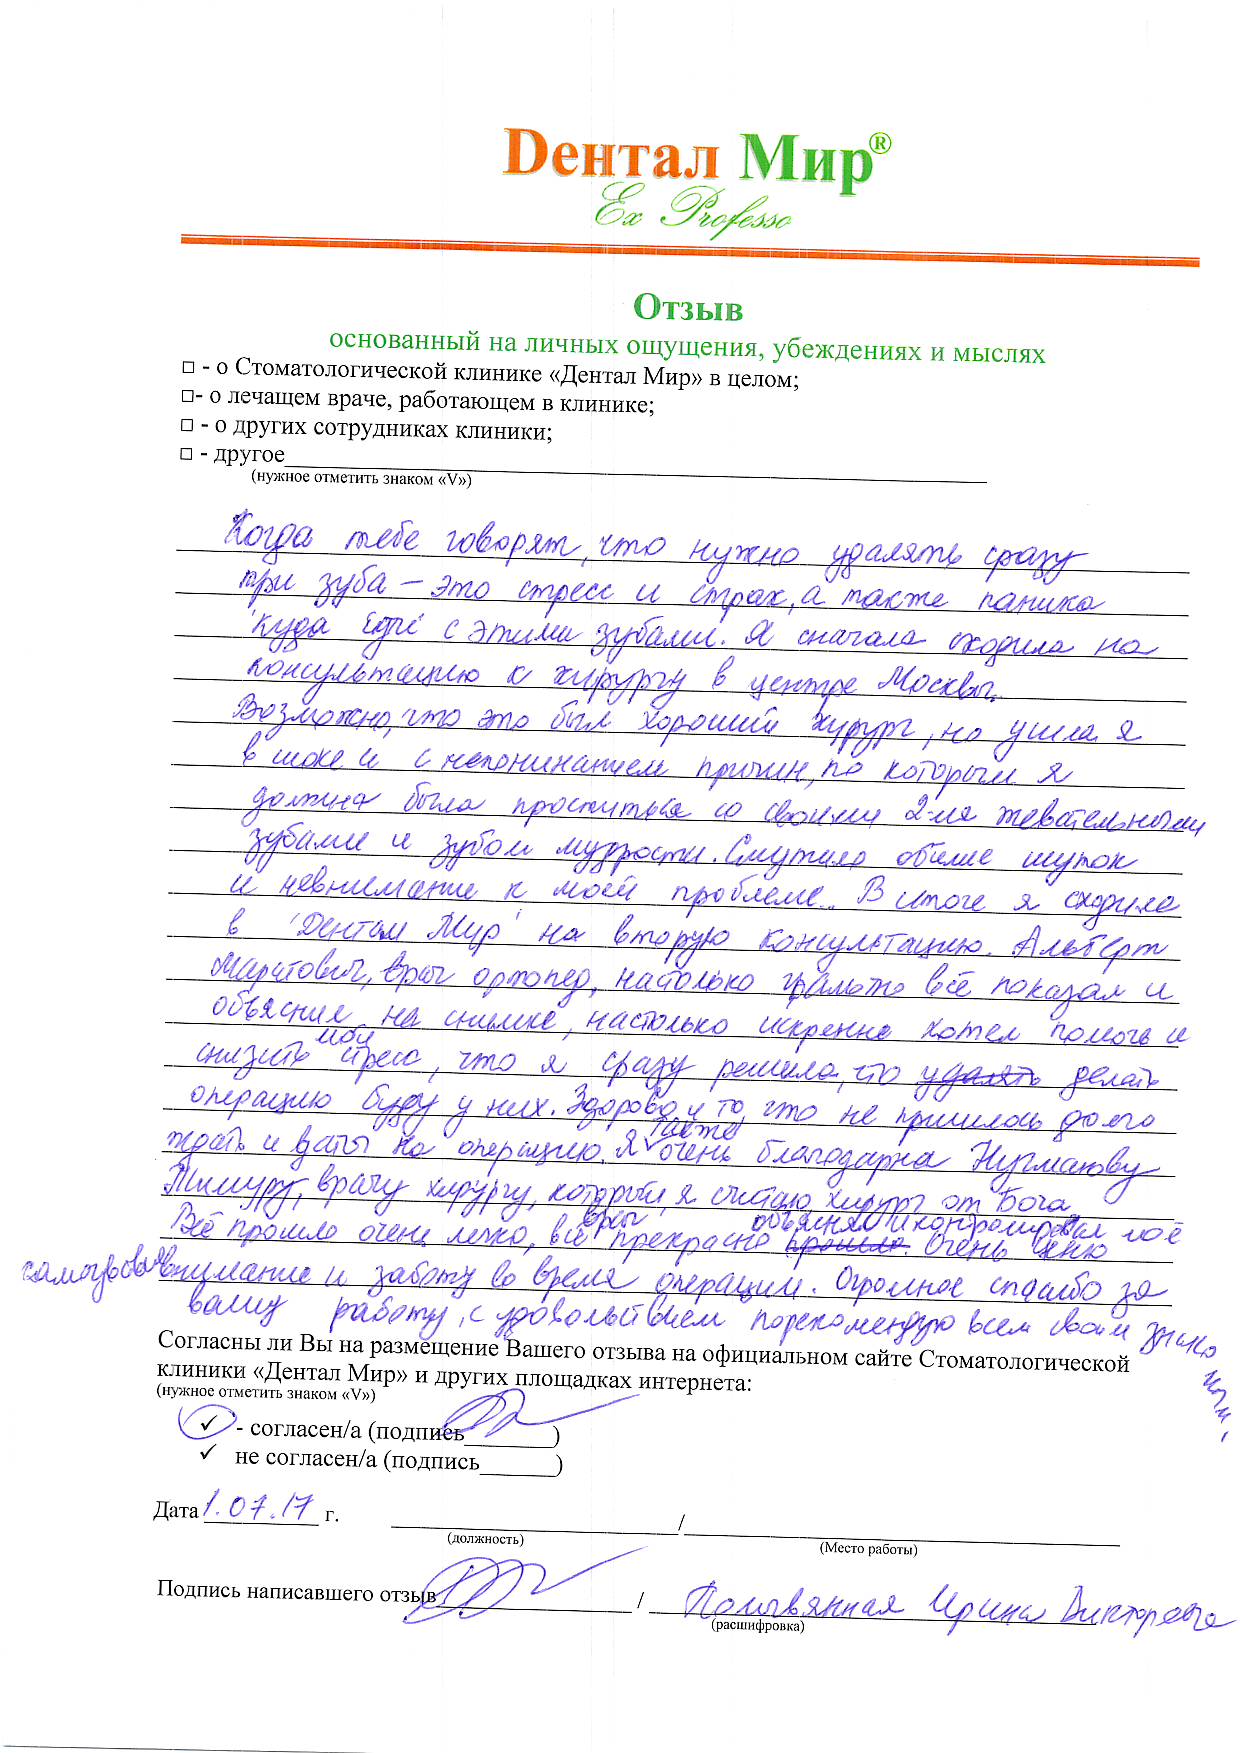 Дентал Мир®
Ex Professo
Отзыв
основанный на личных ощущения, убеждениях и мыслях
□ - о Стоматологической клинике «Дентал Мир» в целом;
□- о лечащем враче, работающем в клинике;
□ - о других сотрудниках клиники;
□ - другое
(нужное отметить знаком «V»)
Когда тебе говорят, что нужно удалять сразу
три зуба – это стресс и страх, а также паника
"куда идти" с этими зубами. Я сначала сходила на
консультацию к хирургу в центре Москвы.
Возможно, что это был хороший хирург, но ушла я
в шоке и с непониманием причин, по которым я
должна была проститься со своими 2-мя жевательными
зубами и зубом мудрости. Смутило обилие шуток
и невнимание к моей проблеме. В итоге я сходила
в "Дентал Мир" на вторую консультацию. Альберт
Маратович, врач ортопед, настолько грамотно всё показал и
объяснил на снимке, настолько искренне хотел помочь и
снизить мой стресс, что я сразу решила, что удалять делать
операцию буду у них. Здорово и то, что не пришлось долго
ждать и даты на операцию. Я также очень благодарна Нугманову
Тимуру, врачу хирургу, который, я считаю, хирург от Бога
Всё прошло очень легко, всё врач прекрасно прошло объяснял и контролировал моё
самочувствие. Очень ценю
внимание и заботу во время операции. Огромное спасибо за
вашу работу, с удовольствием порекомендую всем своим знакомым.
Согласны ли Вы на размещение Вашего отзыва на официальном сайте Стоматологической
клиники «Дентал Мир» и других площадках интернета:
(нужное отметить знаком «V»)
✓ - согласен/а (подпись_______)
✓ не согласен/а (подпись______)
Дата 1.07.17 г.
/
(должность) (Место работы)
Подпись написавшего отзыв / Полывянная Ирина Викторовна
(расшифровка)